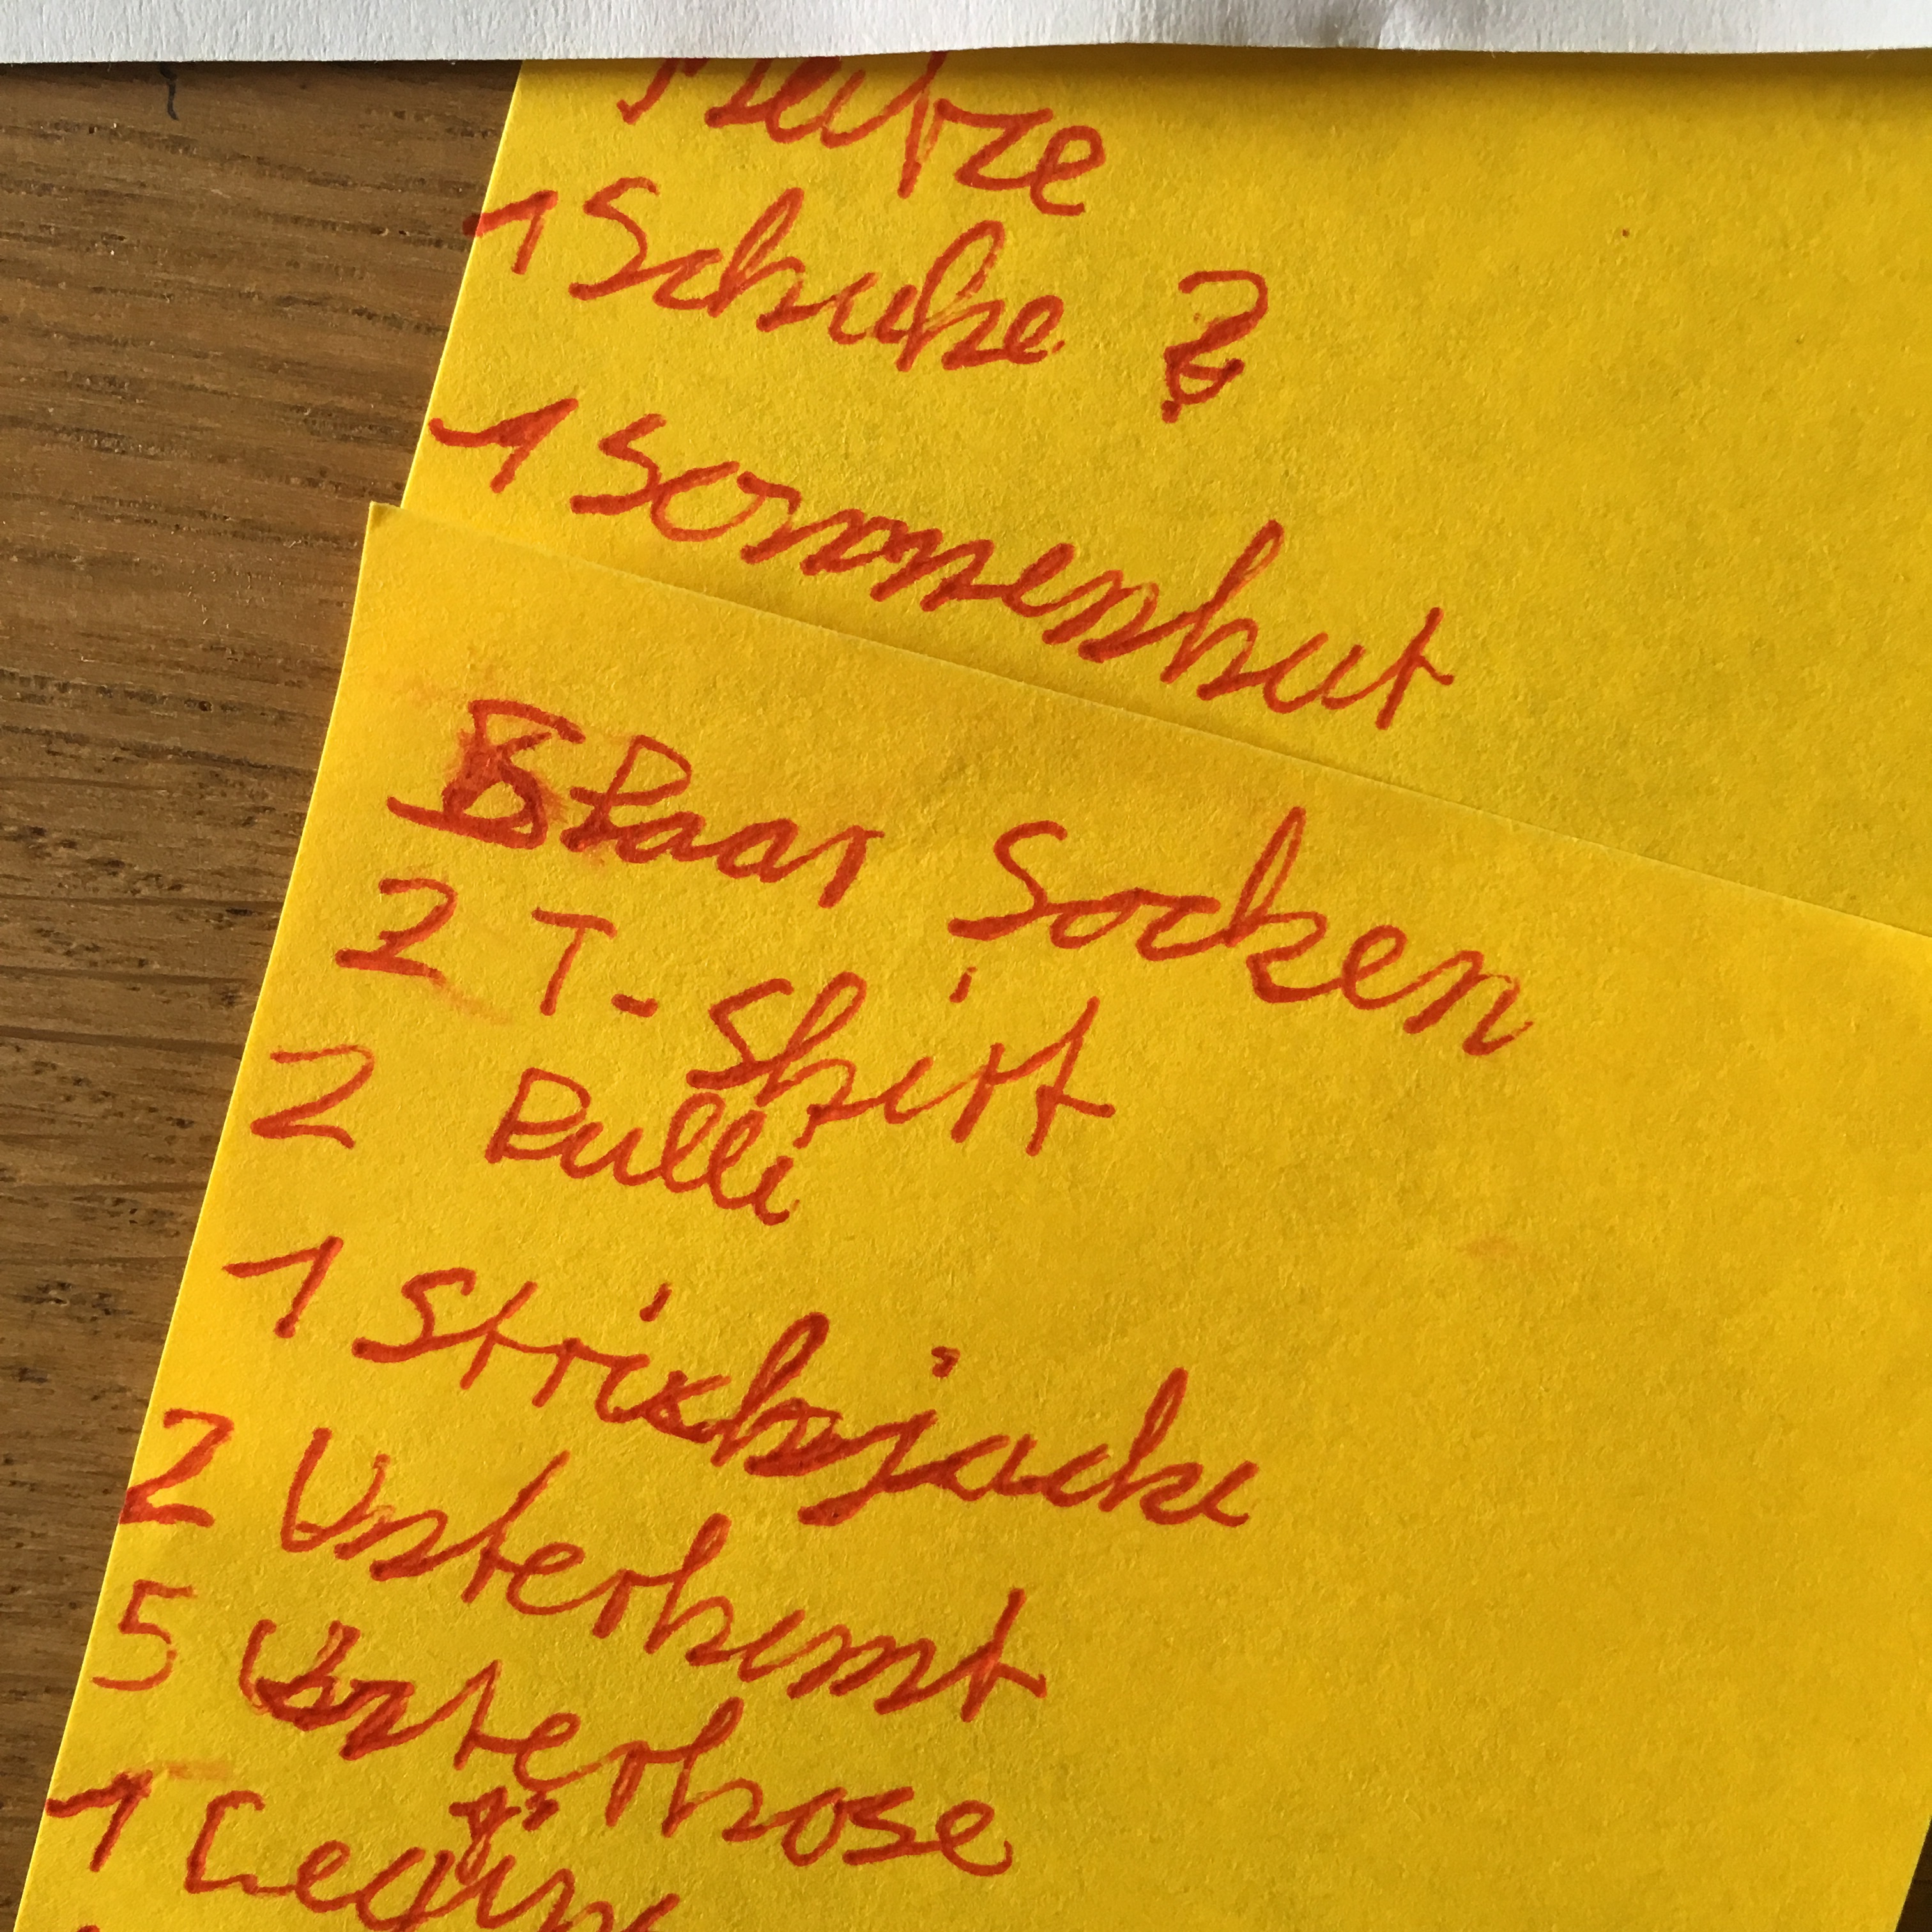 1 Schuhe ?
1 Sonnenhut
Paar Socken
2 T-Shirt
2 Pulli
1 Strickjacke
2 Unterhemt
5 Unterhose
1